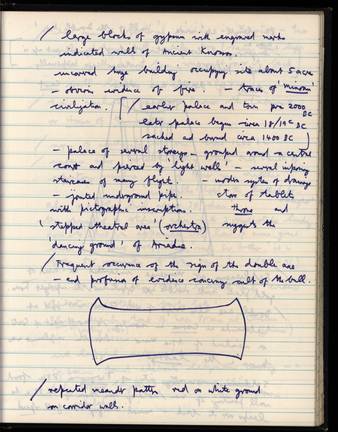 / large blocks of gypsum with engraved marks
indicated walls of Ancient Knossos.
uncovered huge building occupying site about 5 acres
- obvious evidence of fire. - traces of 'minoan'
civilization. [/ earlier palace and town pre 2000 BC
late palace begun circa 18/19c BC
sacked and burned circa 1400 BC )
- palace of several storeys - grouped around a centre
court and pierced by 'light wells' - several imposing
staircases of many flights. - modern system of drainage
- jointed underground pipe. store of tablets
with pictographic inscription. throne and
'stepped theatrical area' (orchestra) suggests the
'dancing ground' of Ariadne.
/ Frequent occurence of the sign of the double axe
- and profusion of evidence concerning cult of the bull.
/ repeated meander pattern red on white ground
on corridor walls.